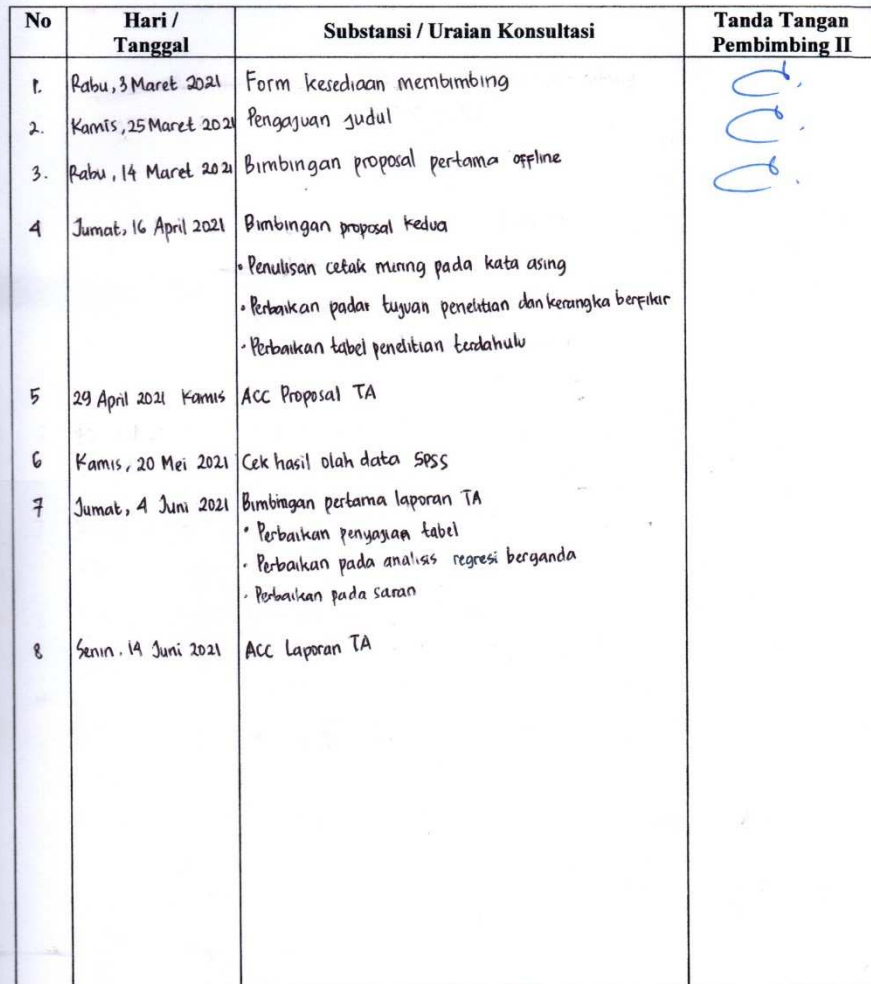 No Hari / Tanggal Substansi / Uraian Konsultasi Tanda Tangan Pembimbing II
1. Rabu, 3 Maret 2021 Form kesediaan membimbing
2. Kamis, 25 Maret 2021 Pengajuan Judul
3. Rabu, 14 Maret 2021 Bimbingan proposal pertama offline
4 Jumat, 16 April 2021 Bimbingan proposal kedua
• Penulisan cetak miring pada kata asing
• Perbaikan padar tujuan penelitian dan kerangka berfikir
• Perbaikan tabel penelitian terdahulu
5 29 April 2021 Kamis ACC Proposal TA
6 Kamis, 20 Mei 2021 Cek hasil olah data SPSS
7 Jumat, 4 Juni 2021 Bimbingan pertama laporan TA
• Perbaikan penyajian tabel
• Perbaikan pada analisis regresi berganda
• Perbaikan pada saran
8 Senin. 14 Juni 2021 ACC Laporan TA